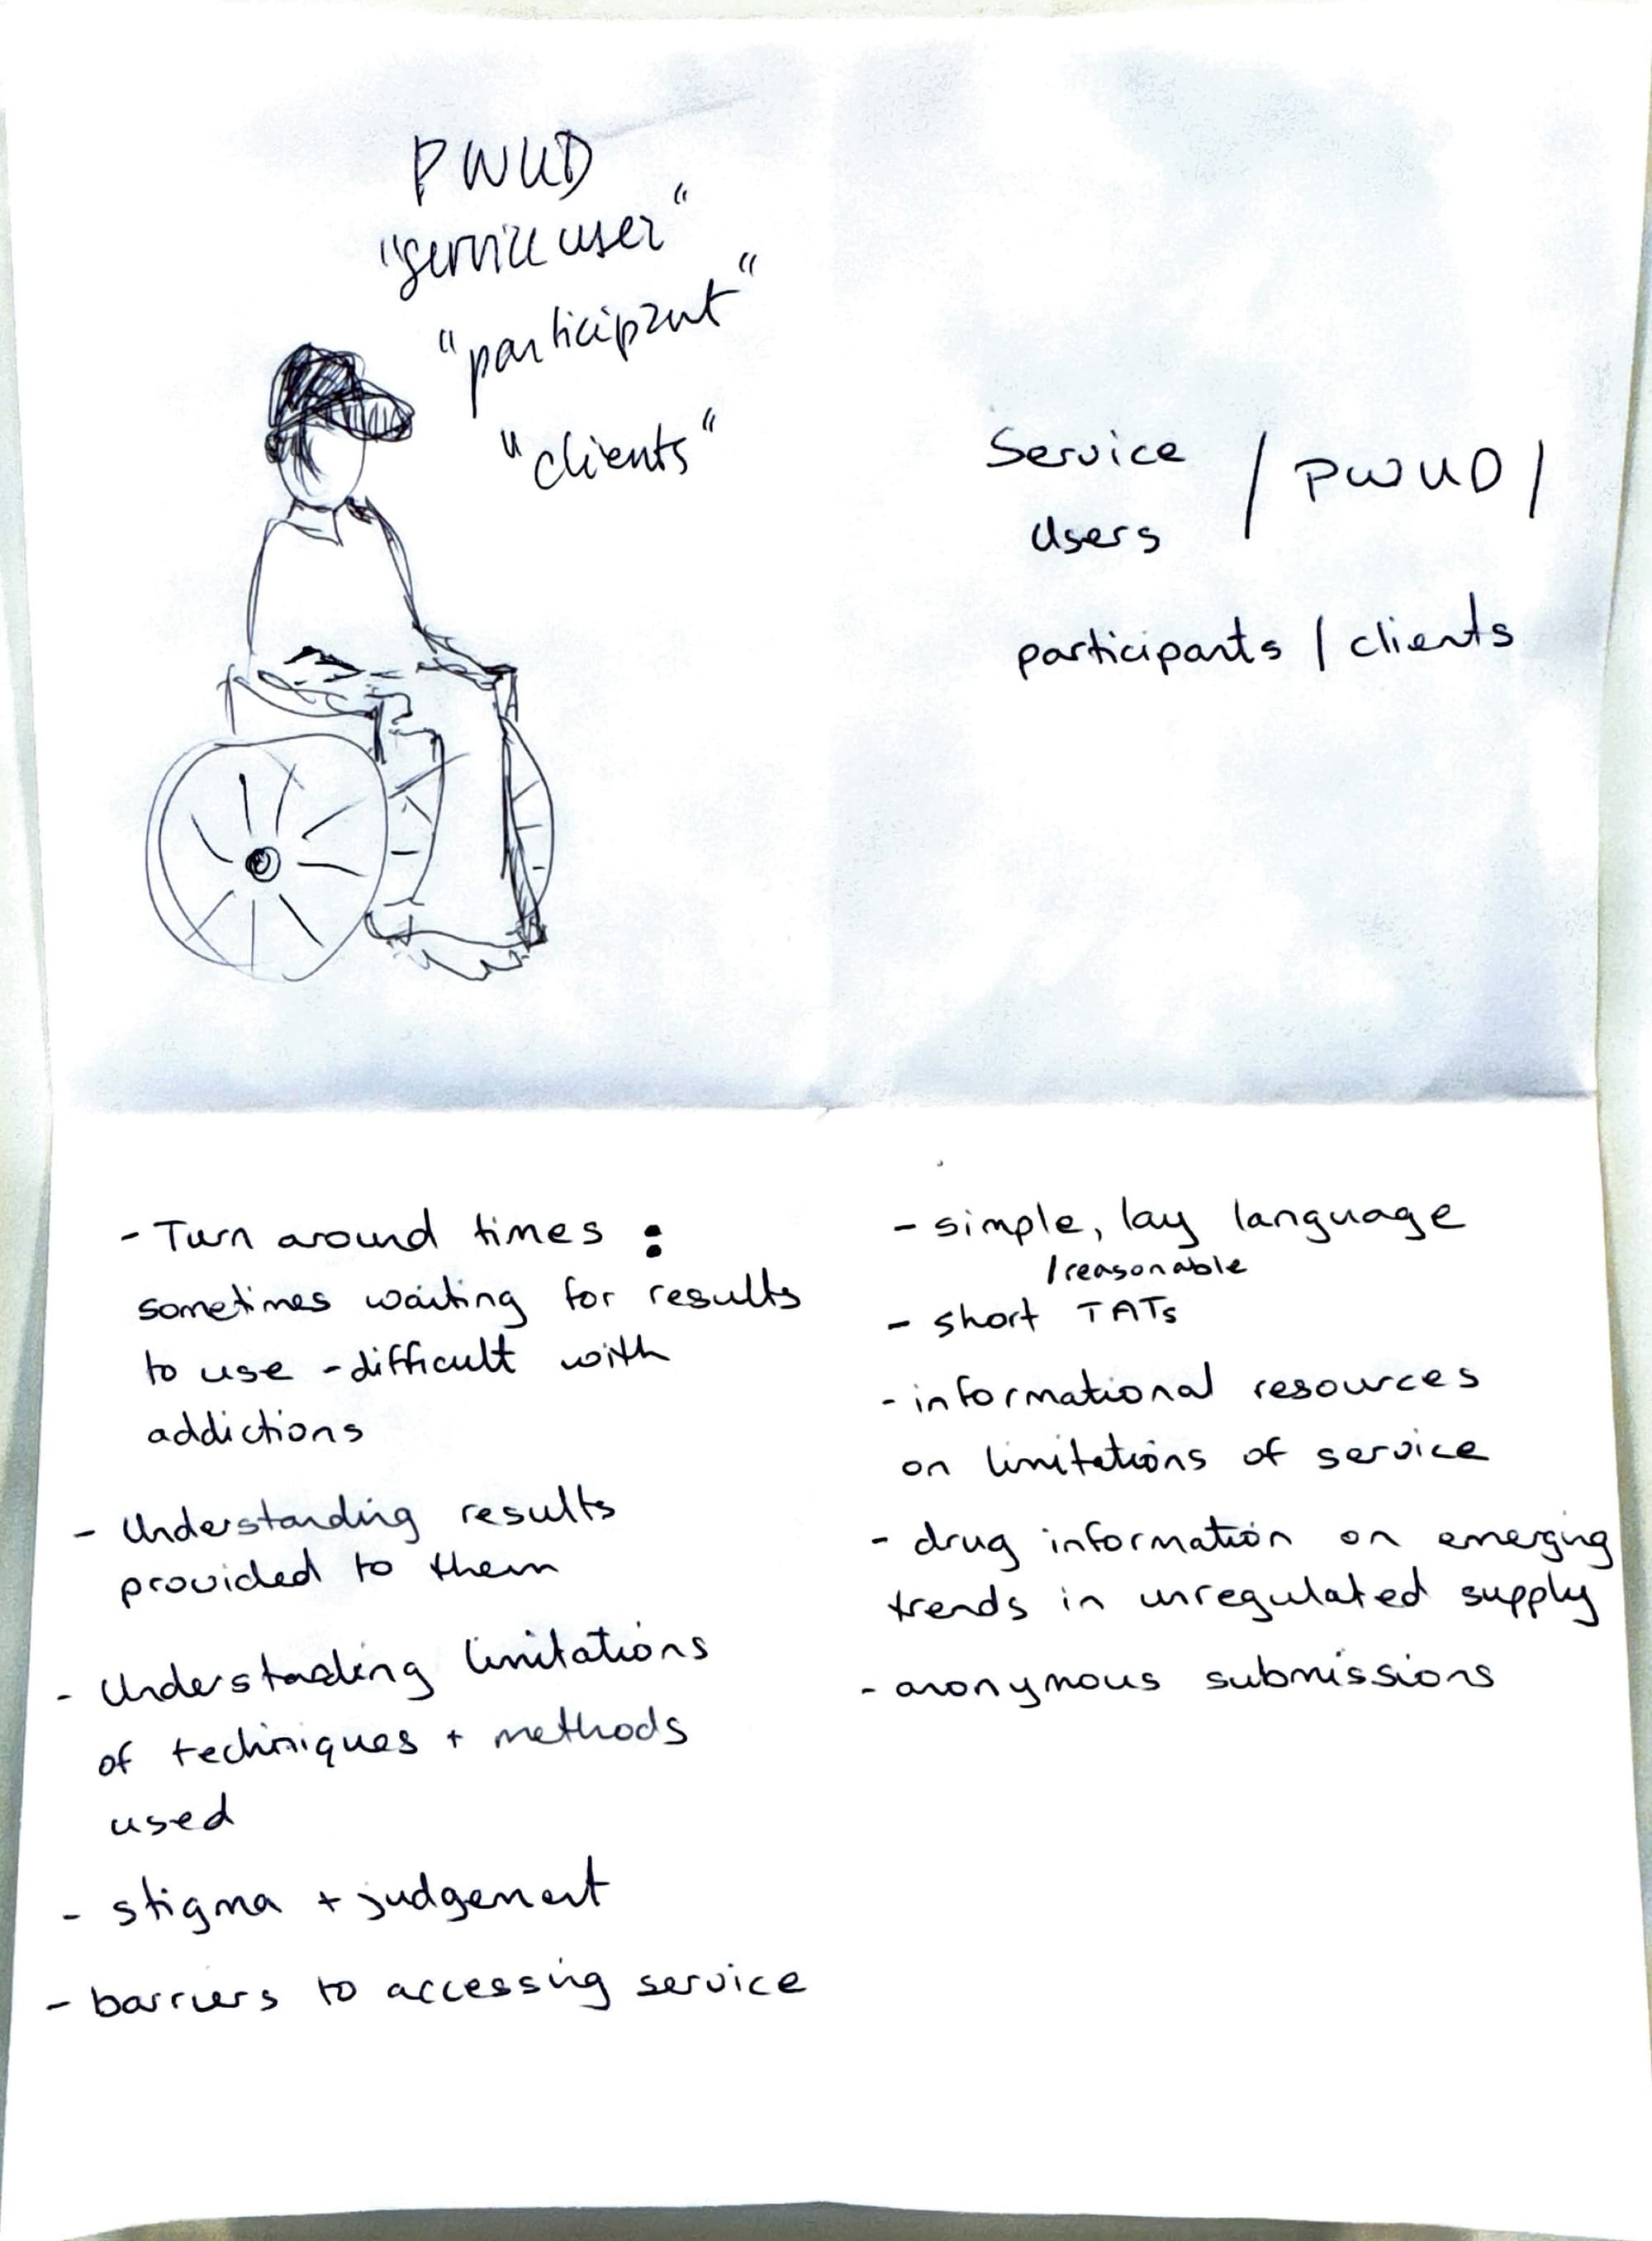 PWUD
"service user"
"participant"
"clients"
Service / PWUD /
Users
participants / clients
- Turn around times :
sometimes waiting for results
to use - difficult with
addictions
- Understanding results
provided to them
- Understanding limitations
of techniques + methods
used
- stigma + judgement
- barriers to accessing service
- simple, lay language
/reasonable
- short TATs
- informational resources
on limitations of service
- drug information on emerging
trends in unregulated supply
- anonymous submissions